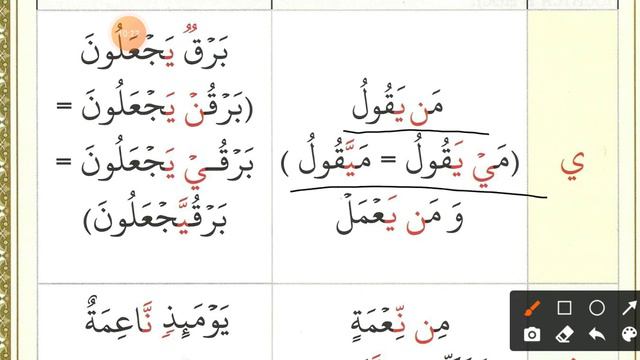 ي
مَن يَقُولُ
(مَيْ يَقُولُ = مَيَّقُولُ)
وَ مَن يَعْمَلْ
بَرْقٌ يَجْعَلُونَ
(بَرْقُنْ يَجْعَلُونَ =
بَرْقُيْ يَجْعَلُونَ =
بَرْقُيَّجْعَلُونَ)
مِن نِّعْمَةٍ
يَوْمَئِذٍ نَّاعِمَةٌ